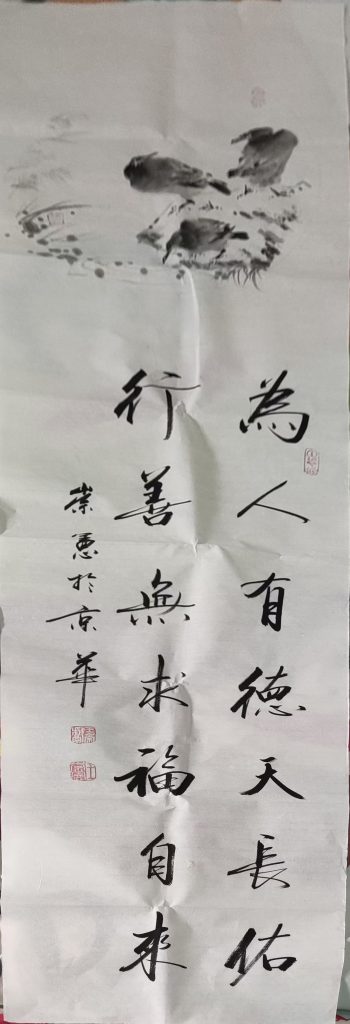 為人有德天長佑
行善無求福自來
崇憲於京華